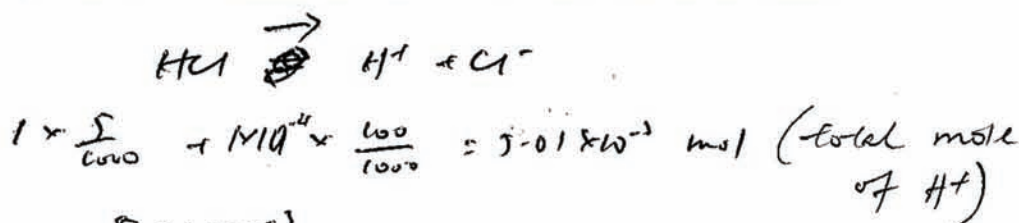 HCl → H⁺ + Cl⁻
1 × 5/1000 + 1×10⁻⁴ × 100/1000 = 5.01×10⁻³ mol (total mole
of H⁺)